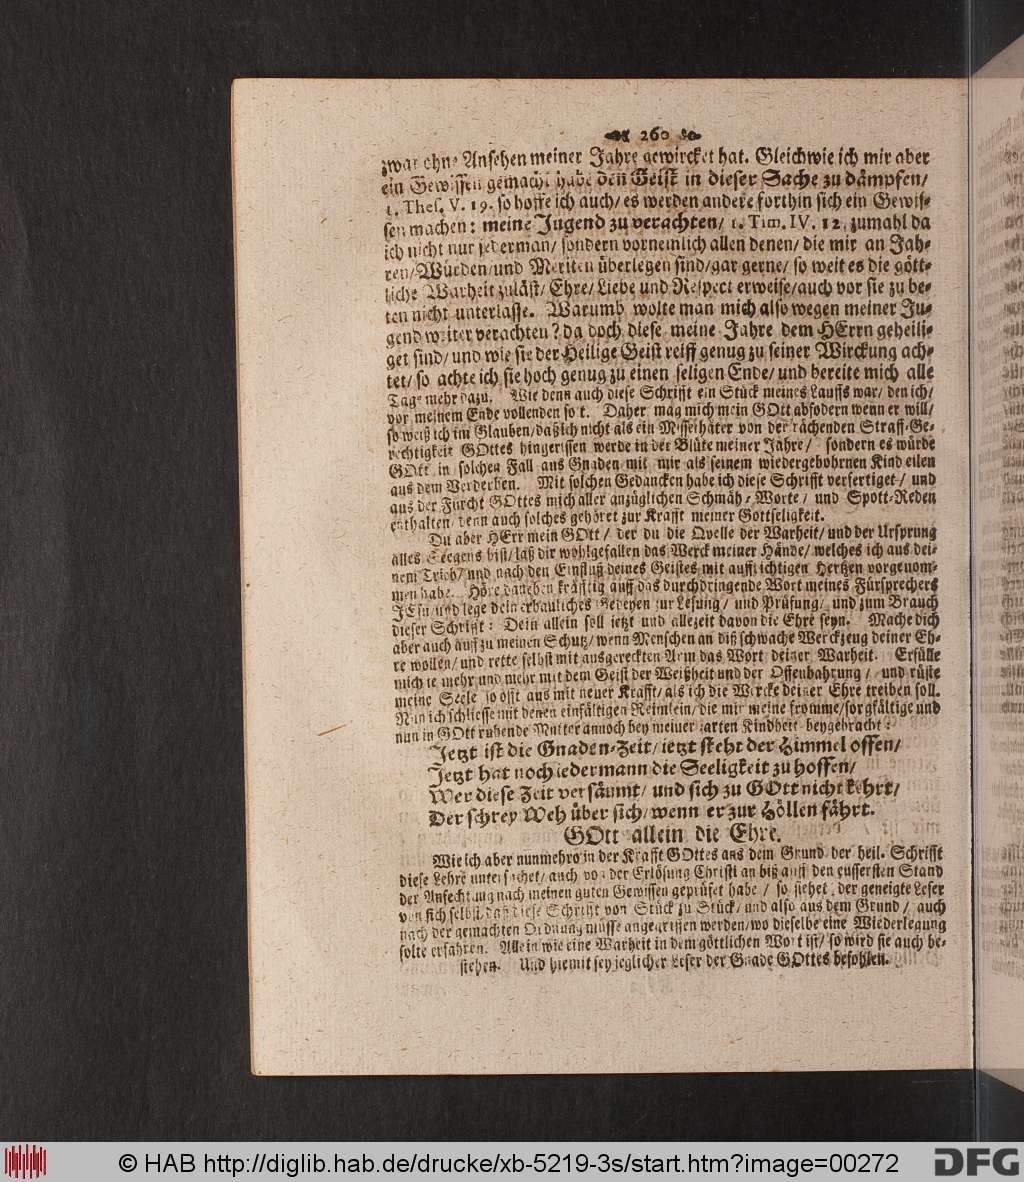 260
zwar ohne Ansehen meiner Jahre gewircket hat. Gleichwie ich mir aber
ein Gewissen gemacht habe den Geist in dieser Sache zu dämpfen/
1. Thes. V. 19. so hoffe ich auch/ es werden andere forthin sich ein Gewis-
sen machen: meine Jugend zu verachten/ 1. Tim. IV. 12. zumahl da
ich nicht nur jederman/ sondern vornemlich allen denen/ die mir an Jah-
ren/ Würden/ und Meriten überlegen sind/ gar gerne/ so weit es die gött-
liche Warheit zuläst/ Ehre/ Liebe und Respect erweise/ auch vor sie zu be-
ten nicht unterlasse. Warumb wolte man mich also wegen meiner Ju-
gend weiter verachten? da doch diese meine Jahre dem HErrn geheili-
get sind/ und wie sie der Heilige Geist reiff genug zu seiner Wirckung ach-
tet/ so achte ich sie hoch genug zu einen seligen Ende/ und bereite mich alle
Tage mehr dazu. Wie denn auch diese Schrifft ein Stück meines Lauffs war/ den ich/
vor meinem Ende vollenden solt. Daher mag mich mein GOtt absodern wenn er will/
so weiß ich im Glauben/ daß ich nicht als ein Missethäter von der rächenden Straff-Ge-
rechtigkeit GOttes hingerissen werde in der Blüte meiner Jahre/ sondern es würde
GOtt in solchen Fall aus Gnaden mit mir als seinem wiedergebohrnen Kind eilen
aus dem Verderben. Mit solchen Gedancken habe ich diese Schrifft verfertiget/ und
aus der Furcht GOttes mich aller anzüglichen Schmäh-Worte/ und Spott-Reden
enthalten/ denn auch solches gehöret zur Krafft meiner Gottseligkeit.
Du aber HErr mein GOtt/ der du die Qvelle der Warheit/ und der Ursprung
alles Seegens bist/ laß dir wohlgefallen das Werck meiner Hände/ welches ich aus dei-
nem Trieb/ und nach den Einfluß deines Geistes mit auffrichtigen Hertzen vorgenom-
men habe. Höre daneben kräfftig auff das durchdringende Wort meines Fürsprechers
JEsu/ und lege dein erbauliches Gedeyen zur Lesung/ und Prüfung/ und zum Brauch
dieser Schrifft: Dein allein soll ietzt und allezeit davon die Ehre seyn. Mache dich
aber auch auff zu meinen Schutz/ wenn Menschen an diß schwache Werckzeug deiner Eh-
re wollen/ und rette selbst mit ausgereckten Arm das Wort deiner Warheit. Erfülle
mich ie mehr und mehr mit dem Geist der Weißheit und der Offenbahrung/ und rüste
meine Seele so offt aus mit neuer Krafft/ als ich die Wercke deiner Ehre treiben soll.
Nun ich schliesse mit denen einfältigen Reimlein/ die mir meine fromme/ sorgfältige und
nun in GOtt ruhende Mutter annoch bey meiner zarten Kindheit beygebracht:
Jetzt ist die Gnaden-Zeit/ ietzt steht der Himmel offen/
Jetzt hat noch iedermann die Seeligkeit zu hoffen/
Wer diese Zeit versäumt/ und sich zu GOtt nicht kehrt/
Der schrey Weh über sich/ wenn er zur Höllen fährt.
GOtt allein die Ehre.
Wie ich aber nunmehro in der Krafft GOttes aus dem Grund der heil. Schrifft
diese Lehre untersuchet/ auch von der Erlösung Christi an biß auff den eussersten Stand
der Anfechtung nach meinen guten Gewissen geprüfet habe/ so siehet der geneigte Leser
von sich selbst/ daß diese Schrifft von Stück zu Stück/ und also aus dem Grund/ auch
nach der gemachten Ordnung müsse angegriffen werden/ wo dieselbe eine Wiederlegung
solte erfahren. Allein wie eine Warheit in dem göttlichen Wort ist/ so wird sie auch be-
stehen. Und hiemit sey jeglicher Leser der Gnade GOttes befohlen.
© HAB http://diglib.hab.de/drucke/xb-5219-3s/start.htm?image=00272
DFG